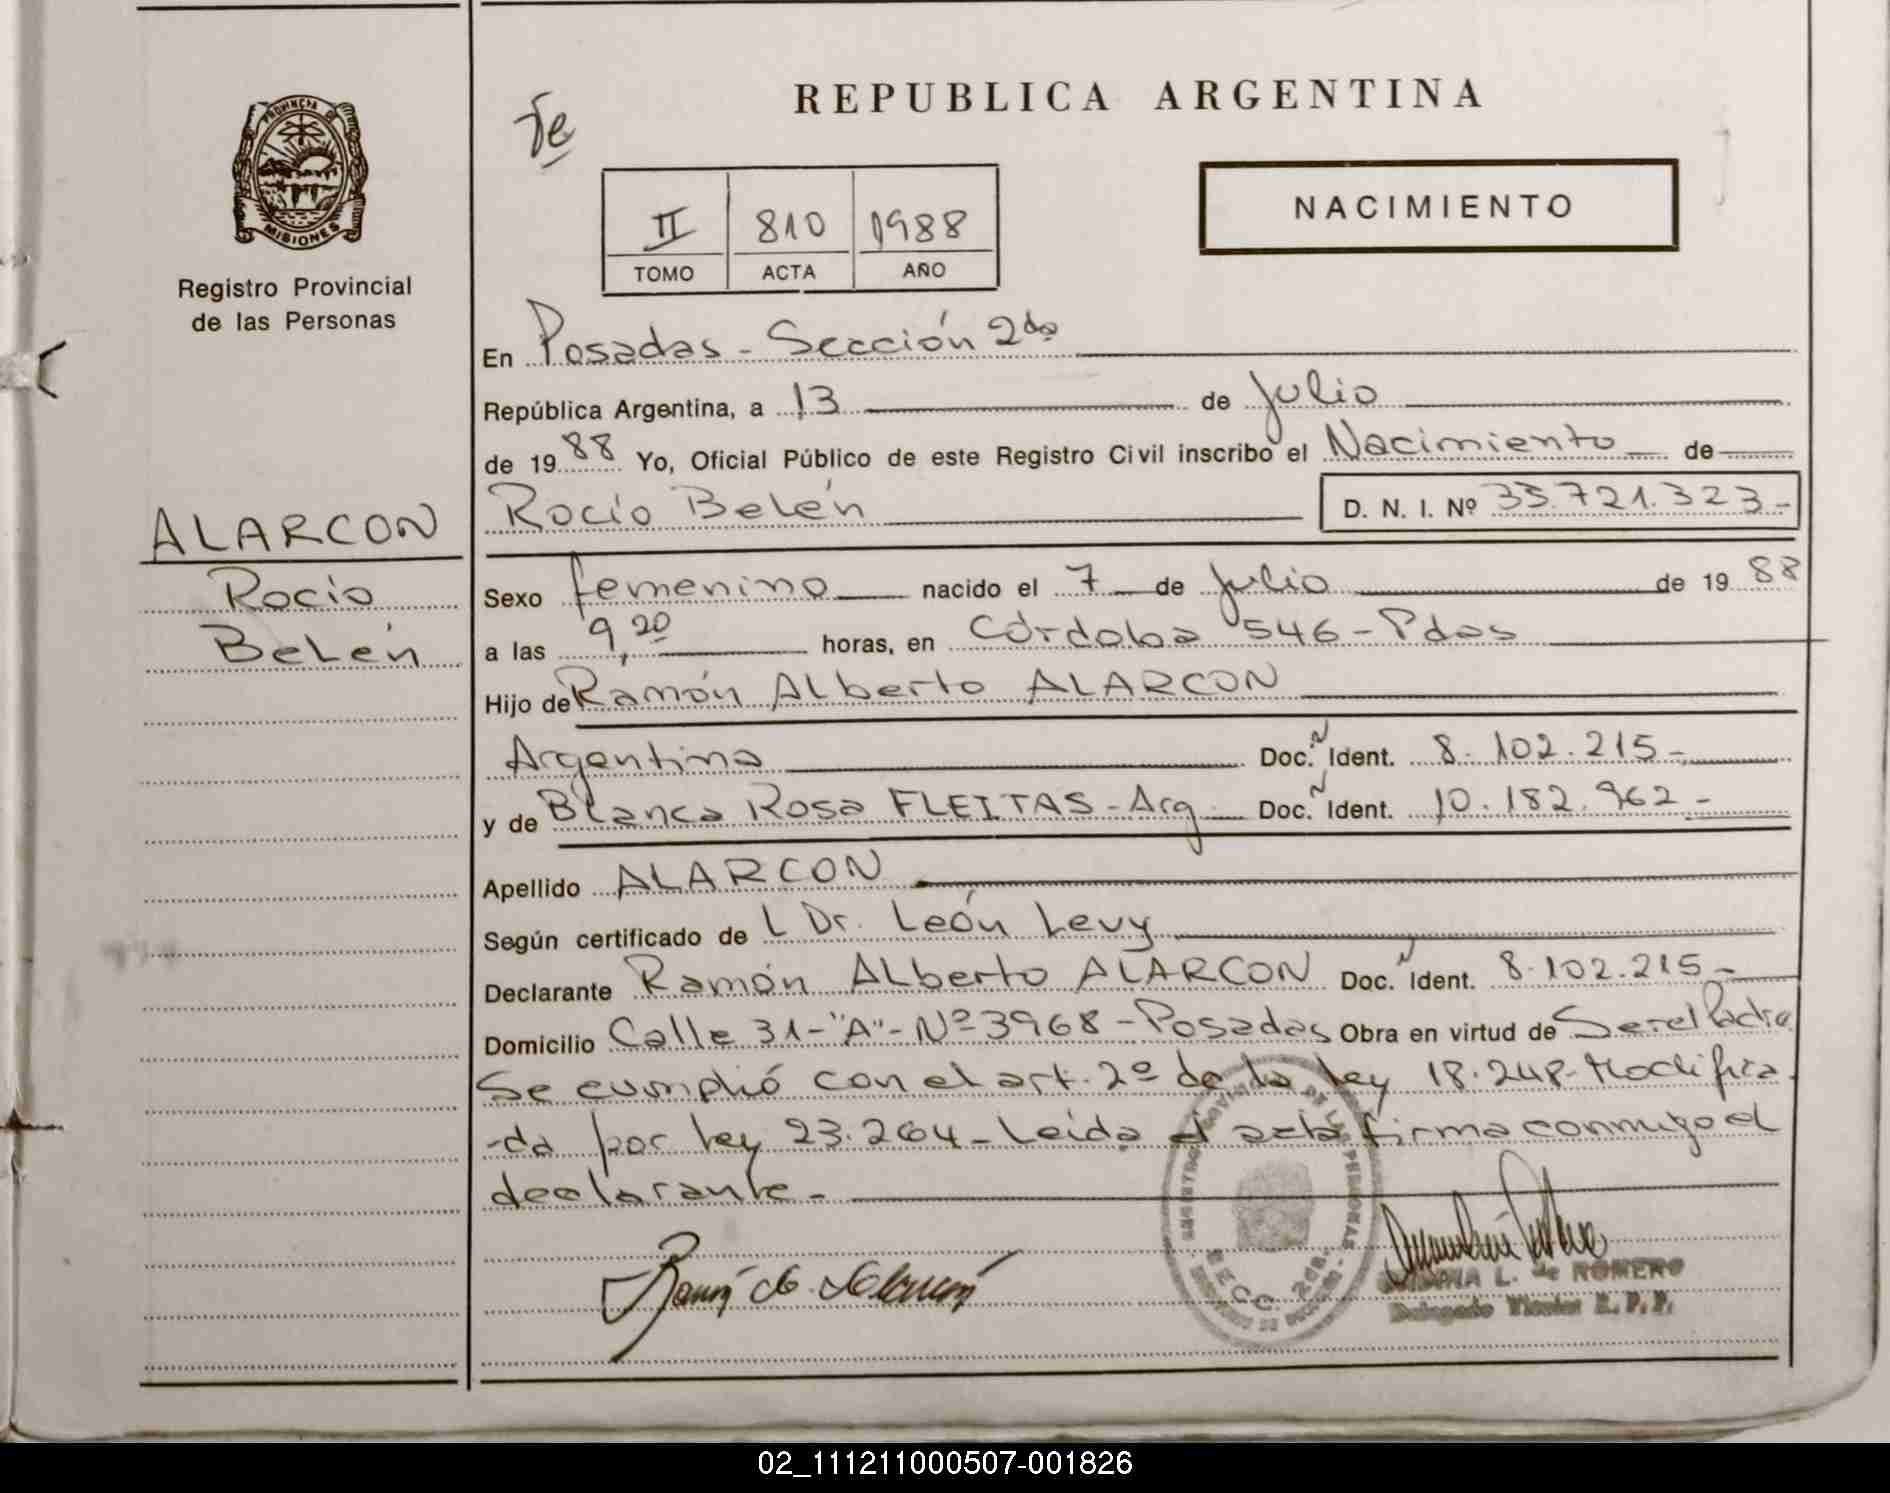 REPUBLICA ARGENTINA
PROVINCIA DE
MISIONES
Registro Provincial
de las Personas
II 810 1988
TOMO ACTA AÑO
NACIMIENTO
En Posadas - Sección 2da
República Argentina, a 13 de Julio
de 1988 Yo, Oficial Público de este Registro Civil inscribo el Nacimiento de
Rocío Belén D. N. I. Nº 33.721.323-
ALARCON
Rocío
Belén
Sexo femenino nacido el 7 de Julio de 1988
a las 9,20 horas, en Córdoba 546 - Pdas
Hijo de Ramón Alberto ALARCON
Argentina Doc. Ident. 8.102.215-
y de Blanca Rosa FLEITAS - Arg Doc. Ident. 10.182.962-
Apellido ALARCON
Según certificado de L Dr. León Levy
Declarante Ramón Alberto ALARCON Doc. Ident. 8.102.215-
Domicilio Calle 31-"A"-Nº 3968 - Posadas Obra en virtud de Ser el Padre
Se cumplió con el art. 2º de la ley 18.248- Modifica
-da por ley 23.264 - Leída el acta firma conmigo el
declarante -
SECC. 2da.
L. de ROMERO
02_111211000507-001826